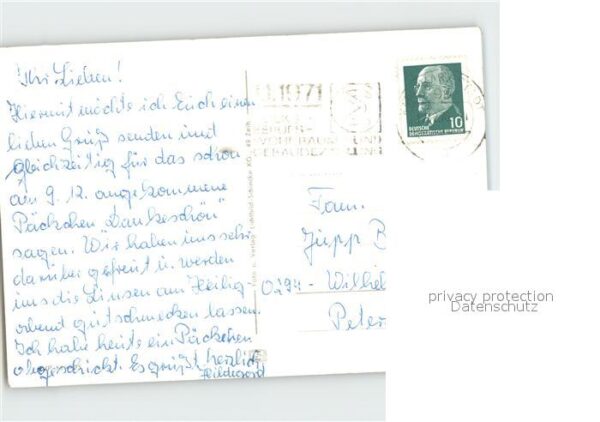 Ihr Lieben!
Hiermit möchte ich Euch einen
lieben Gruß senden und
gleichzeitig für das schon
am 9. 12. angekommene
Päckchen "Dankeschön"
sagen. Wir haben uns sehr
darüber gefreut u. werden
uns die Linsen am Heilig-
abend gut schmecken lassen.
Ich habe heute ein Päckchen
abgeschickt. Es grüßt herzlich
Hildegard
1971
10
DEUTSCHE
DEMOKRATISCHE REPUBLIK
Fam.
Jupp B
0294- Wilhel
Peter
privacy protection
Datenschutz